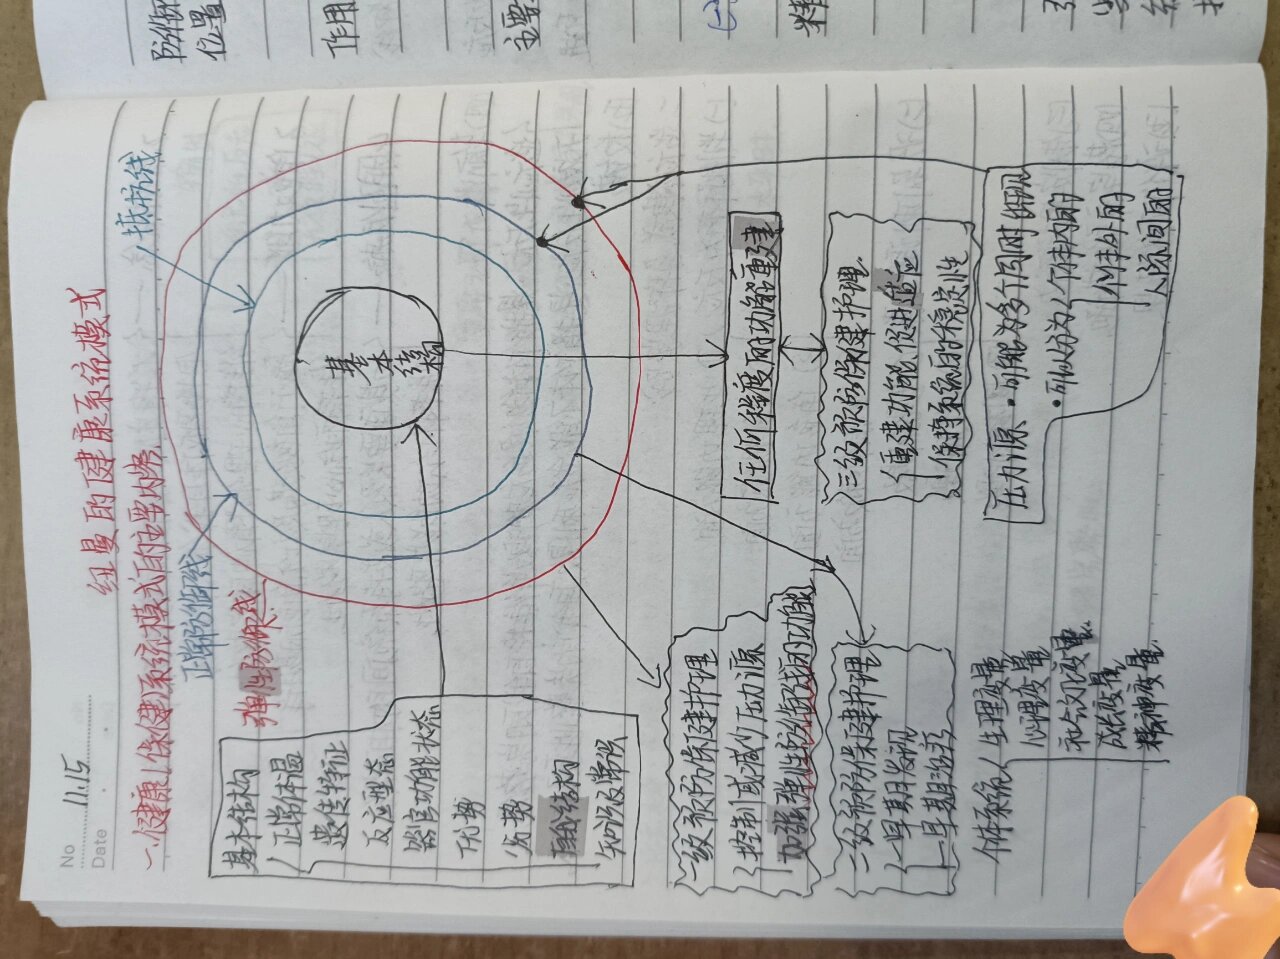 No 11.15
Date
纽曼的健康系统模式
一.健康/保健系统模式的主要内容
抵抗线
正常防御线
弹性防御线
基本
结构
基本结构
正常体温
遗传特征
反应型态
器官功能状态
优势
劣势
自我结构
知识及常级
一级预防保健护理
控制或减少压力源
加强弹性防御线的功能
二级预防保健护理
早期发现
早期治疗
个体系统
生理变量
心理变量
社会文化变量
成长变量
精神变量
任何程度的功能重建
三级预防保健护理
重建功能,促进适应
保持系统的稳定性
压力源
·可能为多个同时出现
·可以分为
个体内的
个体外的
人际间的
防御
位置
作用
主要
精